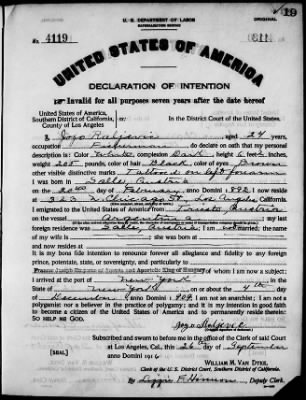 19
U. S. DEPARTMENT OF LABOR
NATURALIZATION SERVICE
ORIGINAL
No. 4119
UNITED STATES OF AMERICA
DECLARATION OF INTENTION
Invalid for all purposes seven years after the date hereof
United States of America,
Southern District of California,
County of Los Angeles
In the District Court of the United States.
I, Jozo aged 24 years,
occupation Fisherman, do declare on oath that my personal
description is: Color White, complexion Dark, height 6 feet inches,
weight 205 pounds, color of hair Black, color of eyes Brown
other visible distinctive marks Tattooed on left forearm
I was born in Austria
on the day of February, anno Domini 1892; I now reside
at 323 N Chicago St, Los Angeles, California.
I emigrated to the United States of America from Trieste, Austria
on the vessel Argentina; my last
foreign residence was Austria; I am not married; the name
of my wife is ; she was born at
and now resides at
It is my bona fide intention to renounce forever all allegiance and fidelity to any foreign
prince, potentate, state, or sovereignty, and particularly to
Francis Joseph Emperor of Austria and Apostolic King of Hungary, of whom I am now a subject;
I arrived at the port of New York, in the
State of New York, on or about the 4th day
of December, anno Domini 1909; I am not an anarchist; I am not a
polygamist nor a believer in the practice of polygamy; and it is my intention in good faith
to become a citizen of the United States of America and to permanently reside therein:
SO HELP ME GOD.
Jozo
Subscribed and sworn to before me in the office of the Clerk of said Court
at Los Angeles, Cal., this 26th day of September
[SEAL] anno Domini 1916
WILLIAM M. VAN DYKE,
Clerk of the U. S. District Court, Southern District of California.
By Deputy Clerk.